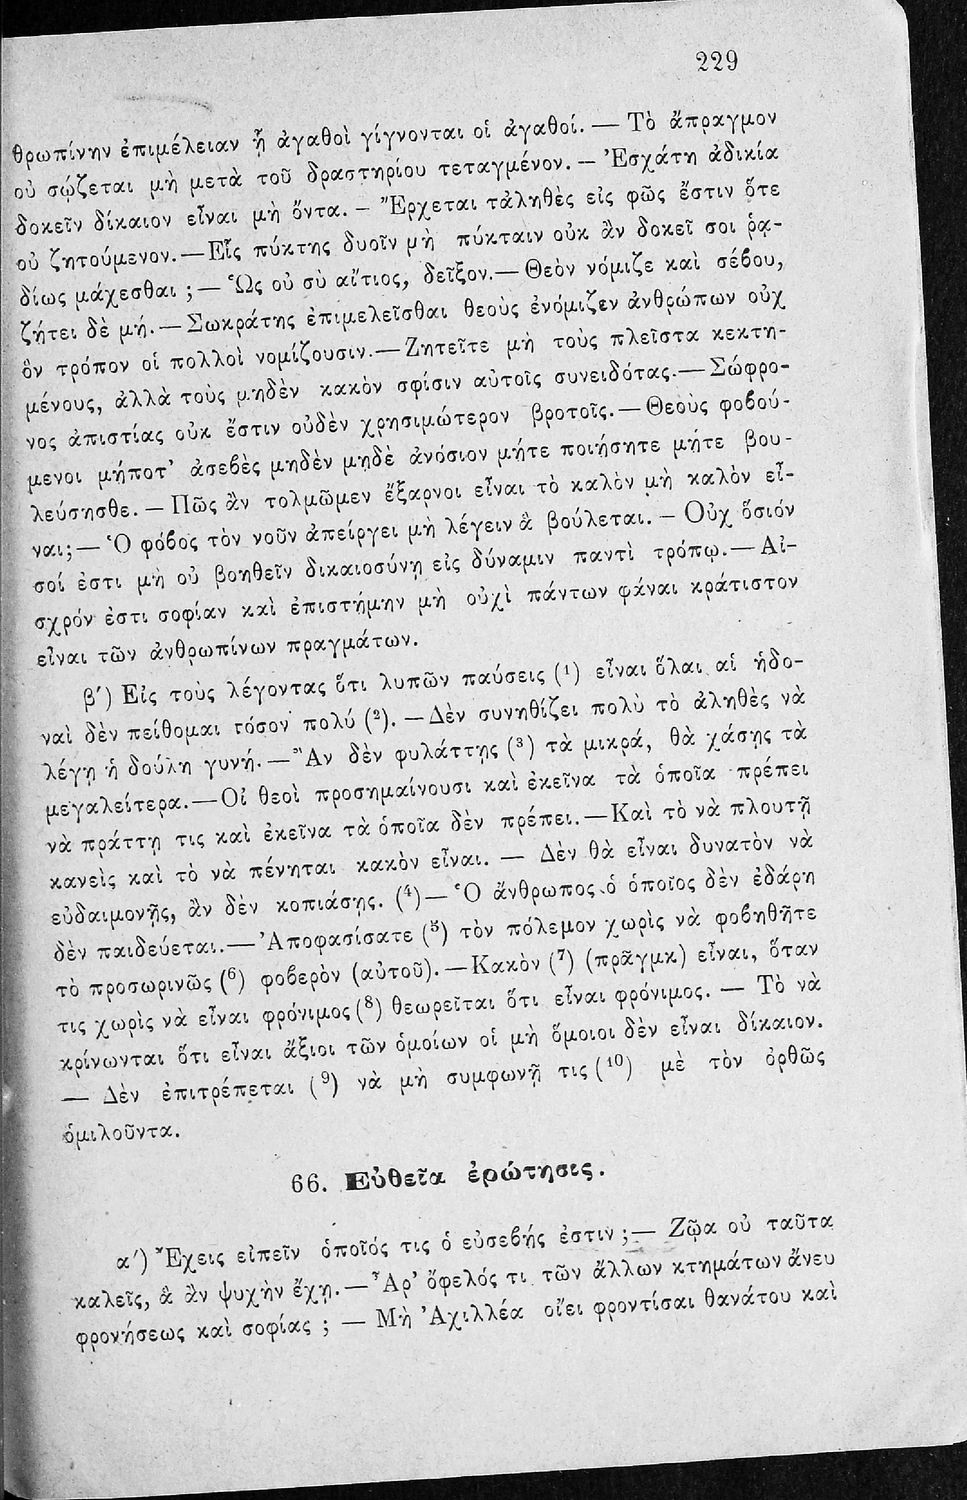 229
θρωπίνην ἐπιμέλειαν ἢ ἀγαθοὶ γίγνονται οἱ ἀγαθοί. — Τὸ ἄπραγμον
οὐ σῴζεται μὴ μετὰ τοῦ δραστηρίου τεταγμένον. — Ἐσχάτη ἀδικία
δοκεῖν δίκαιον εἶναι μὴ ὄντα. — Ἔρχεται τἀληθὲς εἰς φῶς ἔστιν ὅτε
οὐ ζητούμενον. — Εἷς πύκτης δυοῖν μὴ πύκταιν οὐκ ἂν δοκεῖ σοι ῥᾳ-
δίως μάχεσθαι ; — Ὡς οὐ σὺ αἴτιος, δεῖξον. — Θεὸν νόμιζε καὶ σέβου,
ζήτει δὲ μή. — Σωκράτης ἐπιμελεῖσθαι θεοὺς ἐνόμιζεν ἀνθρώπων οὐχ
ὃν τρόπον οἱ πολλοὶ νομίζουσιν. — Ζητεῖτε μὴ τοὺς πλεῖστα κεκτη-
μένους, ἀλλὰ τοὺς μηδὲν κακὸν σφίσιν αὐτοῖς συνειδότας. — Σώφρο-
νος ἀπιστίας οὐκ ἔστιν οὐδὲν χρησιμώτερον βροτοῖς. — Θεοὺς φοβού-
μενοι μήποτ' ἀσεβὲς μηδὲν μηδὲ ἀνόσιον μήτε ποιήσητε μήτε βου-
λεύσησθε. — Πῶς ἂν τολμῶμεν ἔξαρνοι εἶναι τὸ καλὸν μὴ καλὸν εἶ-
ναι; — Ὁ φόβος τὸν νοῦν ἀπείργει μὴ λέγειν ἃ βούλεται. — Οὐχ ὅσιόν
σοί ἐστι μὴ οὐ βοηθεῖν δικαιοσύνῃ εἰς δύναμιν παντὶ τρόπῳ. — Αἰ-
σχρόν ἐστι σοφίαν καὶ ἐπιστήμην μὴ οὐχὶ πάντων φάναι κράτιστον
εἶναι τῶν ἀνθρωπίνων πραγμάτων.
β') Εἰς τοὺς λέγοντας ὅτι λυπῶν παύσεις (1) εἶναι ὅλαι αἱ ἡδο-
ναὶ δὲν πείθομαι τόσον πολύ (2). — Δὲν συνηθίζει πολὺ τὸ ἀληθὲς νὰ
λέγῃ ἡ δούλη γυνή. — Ἂν δὲν φυλάττῃς (3) τὰ μικρά, θὰ χάσῃς τὰ
μεγαλείτερα. — Οἱ θεοὶ προσημαίνουσι καὶ ἐκεῖνα τὰ ὁποῖα πρέπει
νὰ πράττῃ τις καὶ ἐκεῖνα τὰ ὁποῖα δὲν πρέπει. — Καὶ τὸ νὰ πλουτῇ
κανεὶς καὶ τὸ νὰ πένηται κακὸν εἶναι. — Δὲν θὰ εἶναι δυνατὸν νὰ
εὐδαιμονῇς, ἂν δὲν κοπιάσῃς. (4) — Ὁ ἄνθρωπος ὁ ὁποῖος δὲν ἐδάρη
δὲν παιδεύεται. — Ἀποφασίσατε (5) τὸν πόλεμον χωρὶς νὰ φοβηθῆτε
τὸ προσωρινῶς (6) φοβερὸν (αὐτοῦ). — Κακὸν (7) (πρᾶγμα) εἶναι, ὅταν
τις χωρὶς νὰ εἶναι φρόνιμος (8) θεωρεῖται ὅτι εἶναι φρόνιμος. — Τὸ νὰ
κρίνωνται ὅτι εἶναι ἄξιοι τῶν ὁμοίων οἱ μὴ ὅμοιοι δὲν εἶναι δίκαιον.
— Δὲν ἐπιτρέπεται (9) νὰ μὴ συμφωνῇ τις (10) μὲ τὸν ὀρθῶς
ὁμιλοῦντα.
66. Εὐθεῖα ἐρώτησις.
α') Ἔχεις εἰπεῖν ὁποῖός τις ὁ εὐσεβής ἐστιν ; — Ζῷα οὐ ταῦτα
καλεῖς, ἃ ἂν ψυχὴν ἔχῃ. — Ἆρ' ὄφελός τι τῶν ἄλλων κτημάτων ἄνευ
φρονήσεως καὶ σοφίας ; — Μὴ Ἀχιλλέα οἴει φροντίσαι θανάτου καὶ